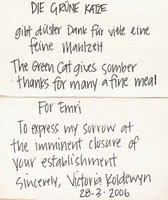 DIE GRÜNE KATZE
gibt düster Dank für viele eine
feine Mahlzeit
The Green Cat gives somber
thanks for many a fine meal
For Emri
To express my sorrow at
the imminent closure of
your establishment
Sincerely, Victoria Koldewyn
28.3.2006